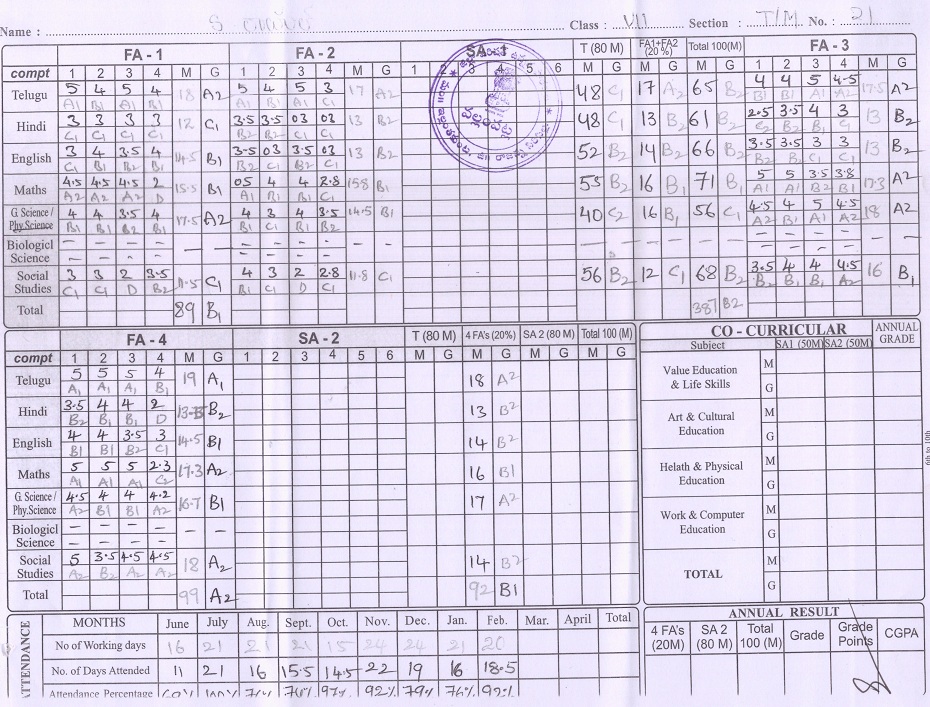 Name : Class : VII Section : T/M No. : 21
FA - 1 FA - 2 SA - 1 T (80 M) FA1+FA2 (20 %) Total 100(M) FA - 3
compt 1 2 3 4 M G 1 2 3 4 M G 1 4 5 6 M G M G M G 1 2 3 4 M G
Telugu 5 4 5 4 18 A2 5 4 5 3 17 A2 48 C1 17 A2 65 B2 4 4 5 4.5 17.5 A2
A1 B1 A1 B1 A1 B1 A1 C1 B1 B1 A1 A2
Hindi 3 3 3 3 12 C1 3.5 3.5 03 03 13 B2 48 C1 13 B2 61 B2 2.5 3.5 4 3 13 B2
C1 C1 C1 C1 B2 B2 C1 C1 C2 B2 B1 C1
English 3 4 3.5 4 14.5 B1 3.5 03 3.5 03 13 B2 52 B2 14 B2 66 B2 3.5 3.5 3 3 13 B2
C1 B1 B2 B1 B2 C1 B2 C1 B2 B2 C1 C1
Maths 4.5 4.5 4.5 2 15.5 B1 05 4 4 2.8 15.8 B1 55 B2 16 B1 71 B1 5 5 3.5 3.8 17.3 A2
A2 A2 A2 D A1 B1 B1 C1 A1 A1 B2 B1
G. Science / Phy.Science 4 4 3.5 4 17.5 A2 4 3 4 3.5 14.5 B1 40 C2 16 B1 56 C1 4.5 4 5 4.5 18 A2
B1 B1 B2 B1 B1 C1 B1 B2 A2 B1 A1 A2
Biological Science – – – – – – – – – – – – – – – – – – – – – – – –
Social Studies 3 3 2 3.5 11.5 C1 4 3 2 2.8 11.8 C1 56 B2 12 C1 68 B2 3.5 4 4 4.5 16 B1
C1 C1 D B2 B1 C1 D C1 B2 B1 B1 A2
Total 89 B1 387 B2
FA - 4 SA - 2 T (80 M) 4 FA's (20%) SA 2 (80 M) Total 100 (M)
compt 1 2 3 4 M G 1 2 3 4 5 6 M G M G M G M G
Telugu 5 5 5 4 19 A1 18 A2
A1 A1 A1 B1
Hindi 3.5 4 4 2 B2 13 B2
B2 B1 B1 D
English 4 4 3.5 3 14.5 B1 14 B2
B1 B1 B2 C1
Maths 5 5 5 2.3 17.3 A2 16 B1
A1 A1 A1 C2
G. Science / Phy.Science 4.5 4 4 4.2 16.7 B1 17 A2
A2 B1 B1 A2
Biologicl Science – – – – – –
– – – –
Social Studies 5 3.5 4.5 4.5 18 A2 14 B2
A2 B2 A2 A2
Total 99 A2 92 B1
CO - CURRICULAR ANNUAL GRADE
Subject SA1 (50M) SA2 (50M)
Value Education & Life Skills M G
Art & Cultural Education M G
Helath & Physical Education M G
Work & Computer Education M G
TOTAL M G
6th to 10th
ATTENDANCE
MONTHS June July Aug. Sept. Oct. Nov. Dec. Jan. Feb. Mar. April Total
No of Working days 16 21 21 21 15 24 24 21 20
No. of Days Attended 11 21 16 15.5 14.5 22 19 16 18.5
Attendance Percentage 97% 92% 79% 76% 92%
ANNUAL RESULT
4 FA's (20M) SA 2 (80 M) Total 100 (M) Grade Grade Points CGPA